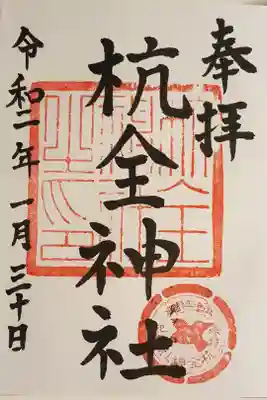 奉拝
杭全神社
令和二年一月三十日